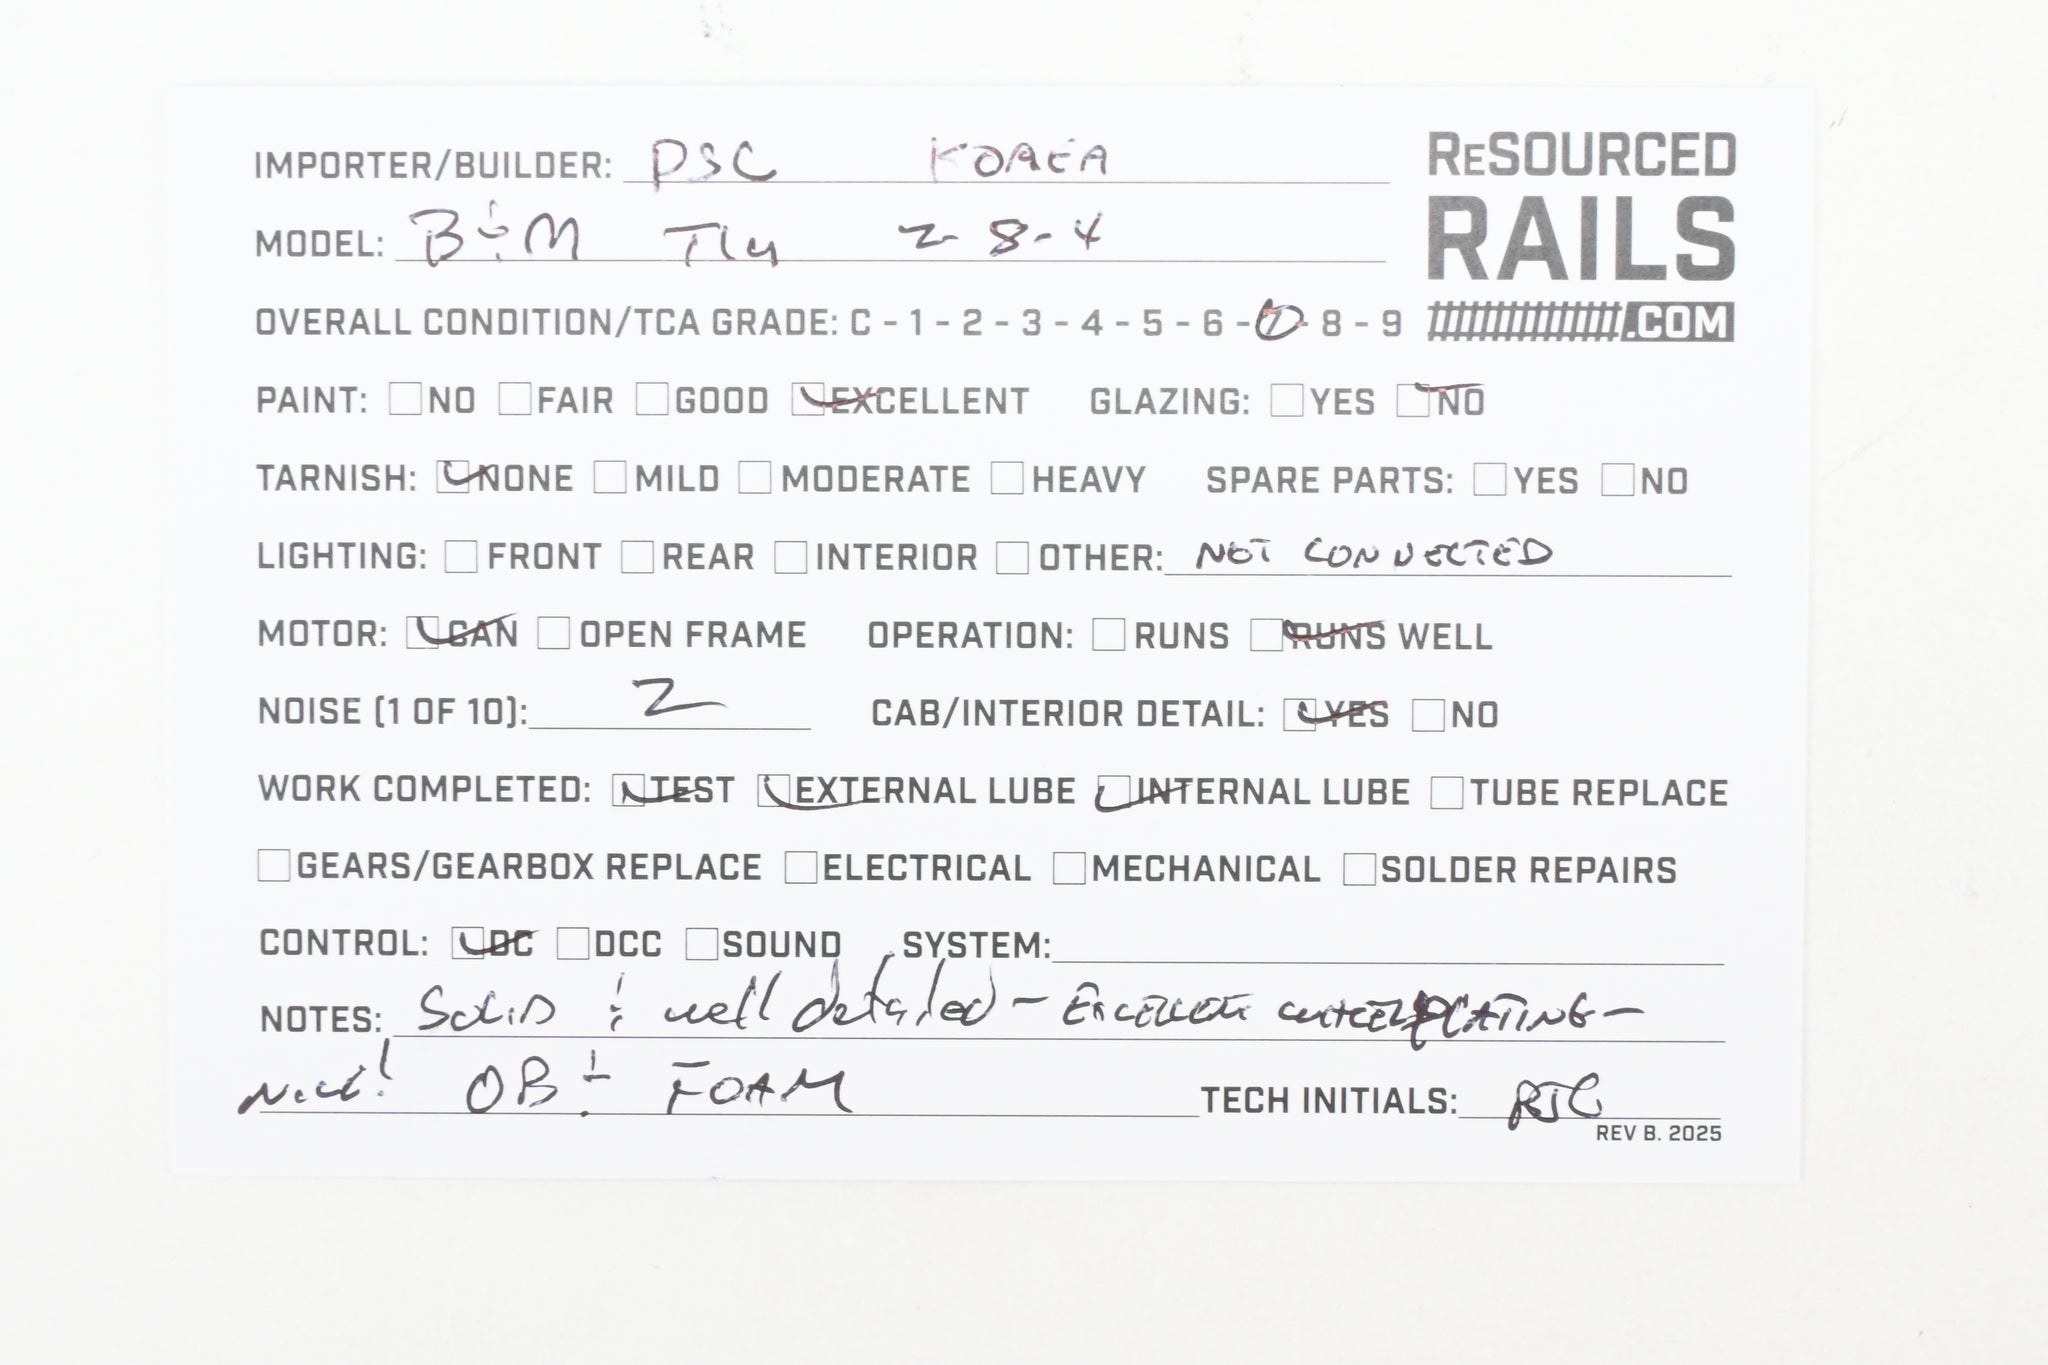 IMPORTER/BUILDER: PSC KOREA
RESOURCED
RAILS
.COM
MODEL: B&M T1a 2-8-4
OVERALL CONDITION/TCA GRADE: C - 1 - 2 - 3 - 4 - 5 - 6 - 7 - 8 - 9
PAINT: NO FAIR GOOD EXCELLENT GLAZING: YES NO
TARNISH: NONE MILD MODERATE HEAVY SPARE PARTS: YES NO
LIGHTING: FRONT REAR INTERIOR OTHER: NOT CONNECTED
MOTOR: CAN OPEN FRAME OPERATION: RUNS RUNS WELL
NOISE (1 OF 10): 2 CAB/INTERIOR DETAIL: YES NO
WORK COMPLETED: TEST EXTERNAL LUBE INTERNAL LUBE TUBE REPLACE
GEARS/GEARBOX REPLACE ELECTRICAL MECHANICAL SOLDER REPAIRS
CONTROL: DC DCC SOUND SYSTEM:
NOTES: SOLID & well detailed - EXCELLENT PLATING -
NICE! OB & FOAM TECH INITIALS: RJC
REV B. 2025